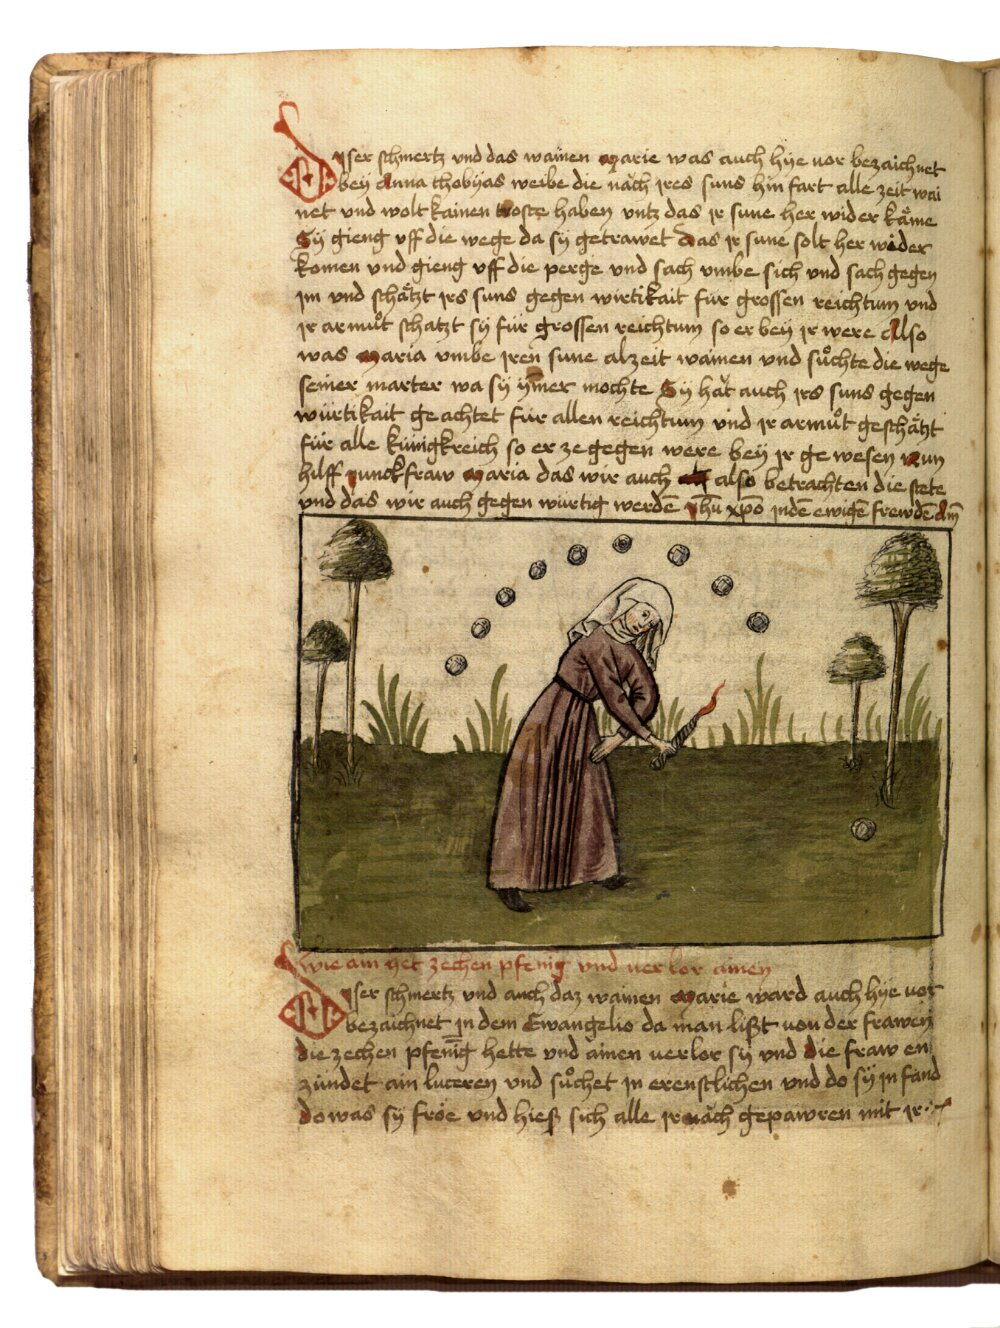 Diser schmertz vnd das wainen Marie was auch hye vor bezaichnet
bey Anna thobyas weibe die nach jres suns hin fart alle zeit wai
net vnd wolt kainen troste haben vntz das jr sune her wider käme
Sy gieng vff die wege da sy getrawet das jr sune solt her wider
komen vnd gieng vff die perge vnd sach vmbe sich vnd sach gegen
jm vnd schätzt jrs suns gegen wirtikait für grossen reichtum vnd
jr armůt schatzt sy für grossen reichtum so er bey jr were Also
was Maria vmbe jren sune alzeit wainen vnd sůchte die wege
seiner marter wa sy ymer mochte Sy hät auch jrs suns gegen
würtikait geachtet für allen reichtum vnd jr armůt geschätzt
für alle küngkreich so er ze gegen were bey jr gewesen Nun
hilff junckfraw Maria das wir auch also betrachten die stete
vnd das wir auch gegen würtig werdē jhū xpō jndē ewigē frewdē Am̄
Wie ain het zechen pfenig vnd verlor ainen
Diser schmertz vnd auch daz wainen Marie ward auch hye vor
bezaichnet jn dem Ewangelio da man lißt von der frawen
die zechen pfenīg hette vnd ainen verlor sy vnd die fraw en
zündet ain luceren vnd sůchet jn erenstlichen vnd do sy jn fand
do was sy fröe vnd hieß sich alle jr nach gepawren mit jr